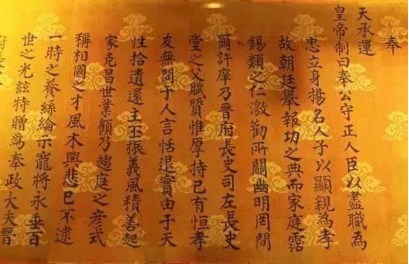 奉
天承運
皇帝制曰奉公守正人臣以盡職為
忠立身揚名人子以顯親為孝
故朝廷舉報功之典而家庭露
錫類之仁激勸所關幽明罔間
爾許摩乃晉府長史司左長史
堂之父賦質惟厚持己有恒孝
友無間于人言恬退實由于天
性拾遺還主丕振義風積善起
家克昌世業乃趨庭之彥式
稱相國之才風木興悲已不逮
一時之養絲綸示寵將永垂百
世之光茲特贈為奉政大夫晉